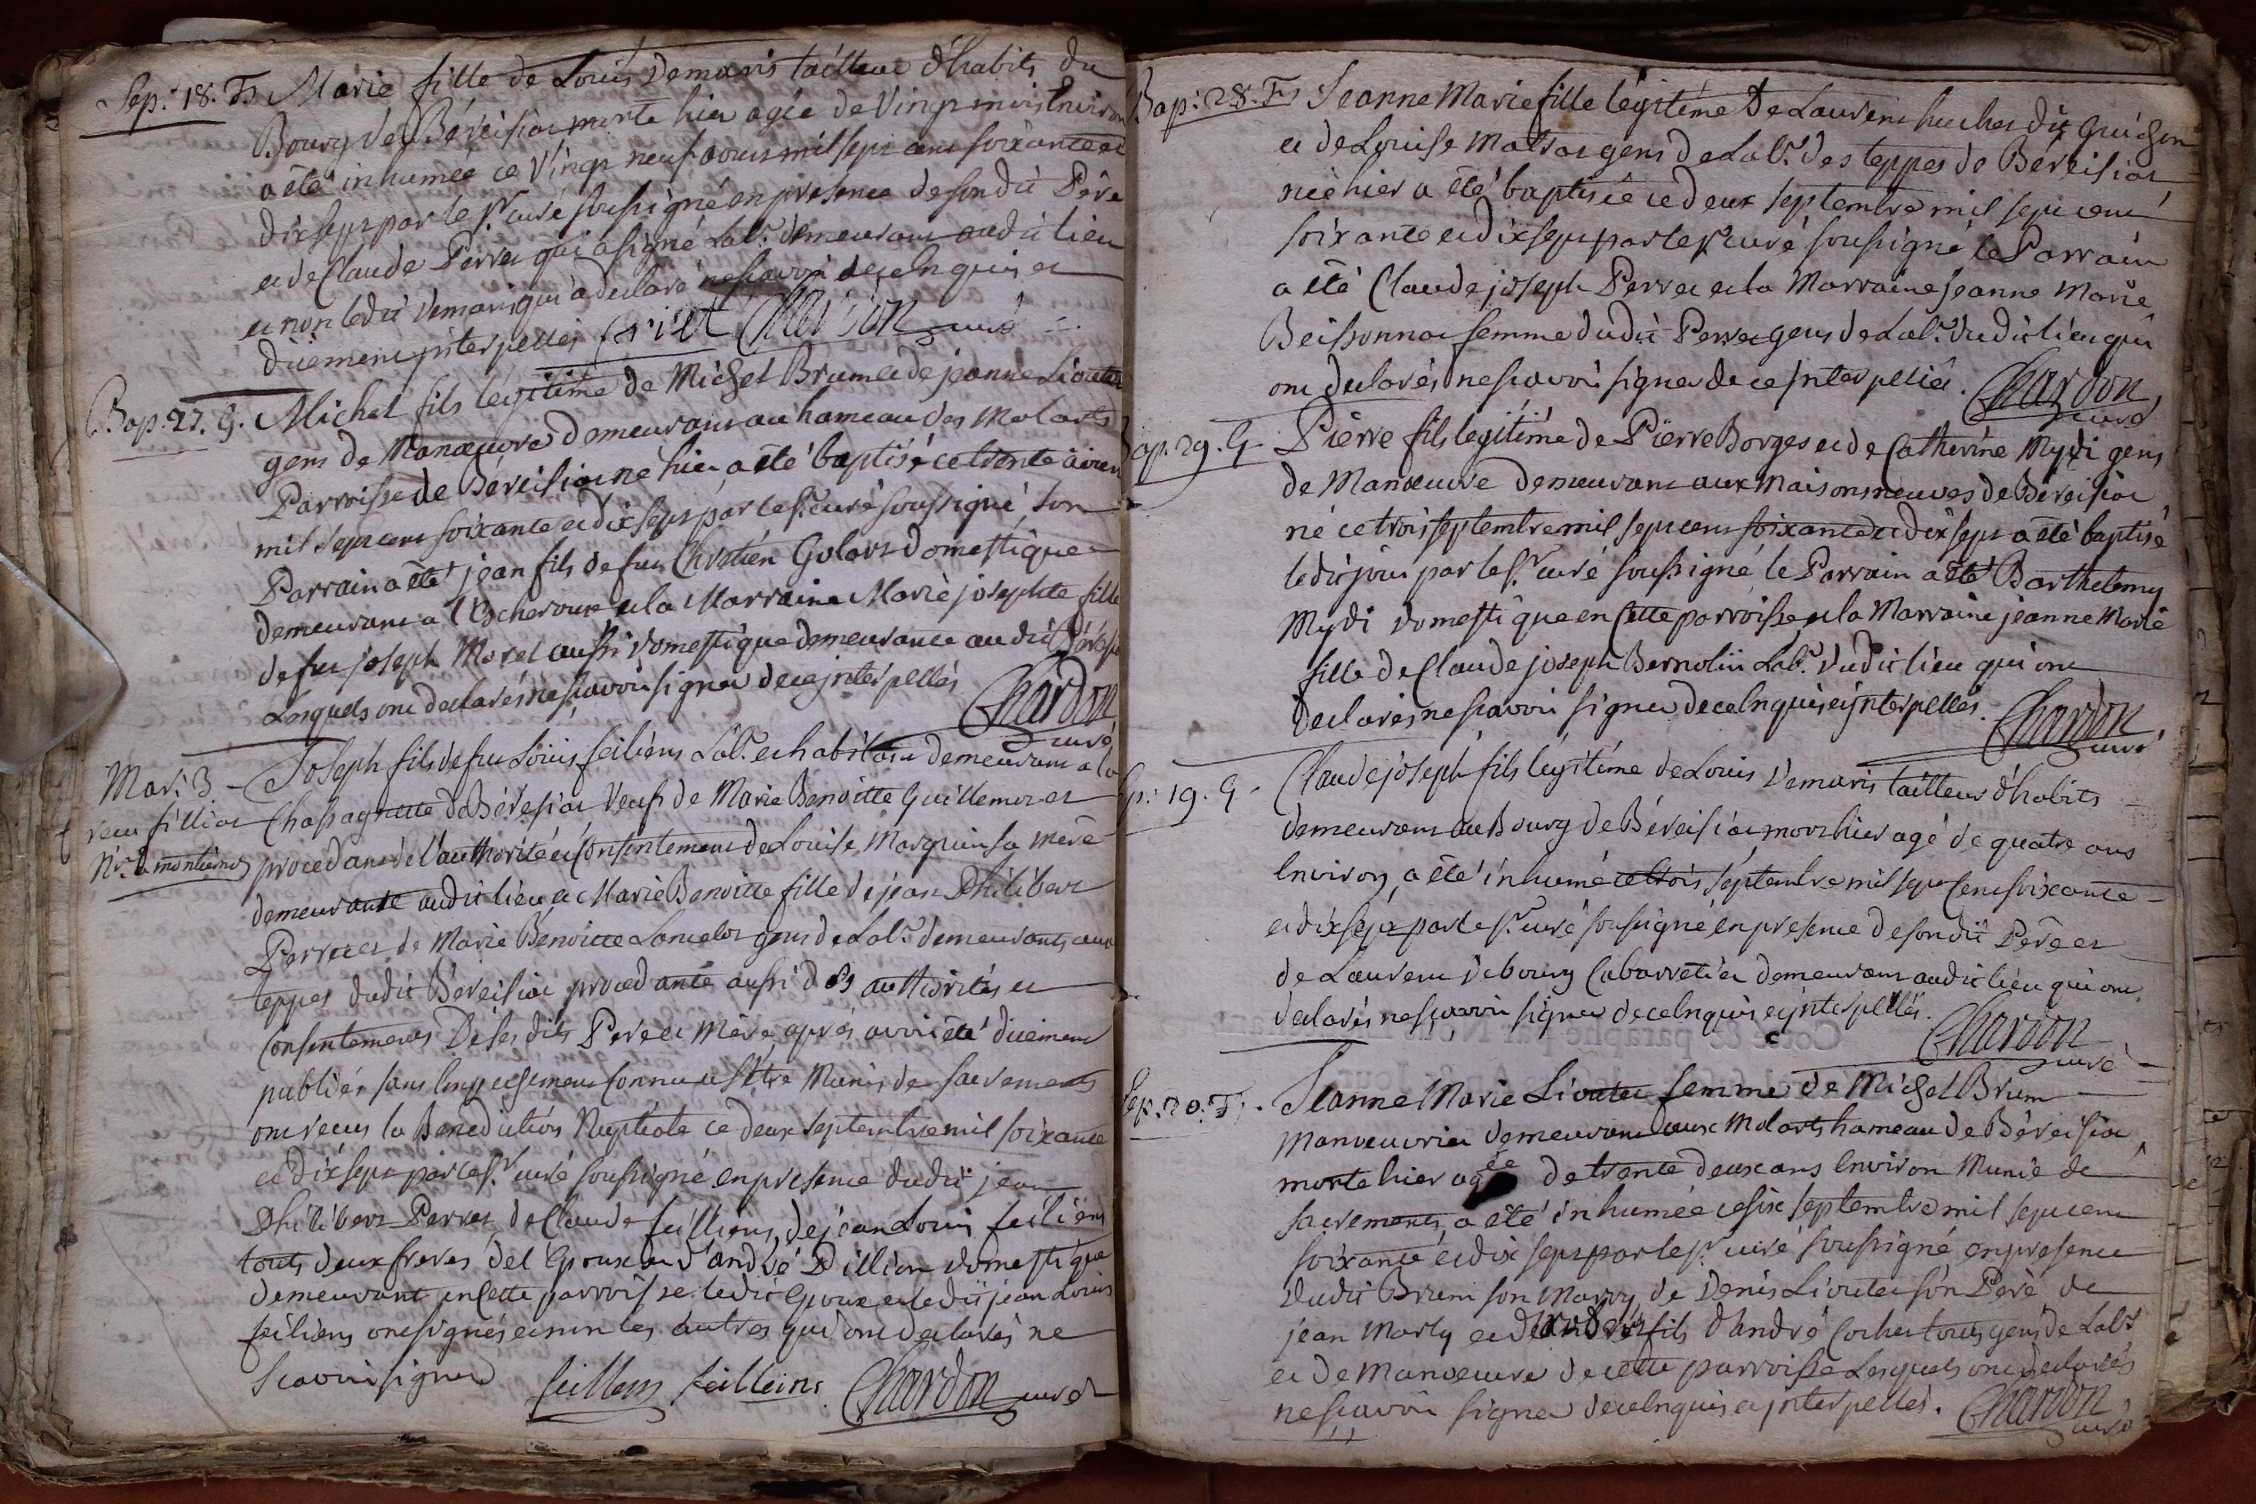 Sep.' 18. F. Marie fille de Louis Demaris tailleur d'habits du
Bourg de Béreisiat morte hier agée de Vingt mois Environ
a été inhumée ce Vingt neuf aout mil sept cent soixante et
dix sept par le Sr. curé soussigné en présence de son dit Père
et de Claude Perret qui a signé Labr. demeurant audit lieu
et non ledit Demaris qui a declaré ne scavoir de ce Enquis et
düement interpellés Chardon curé
Bap. 27. G. Michel fils légitime de Michel Brum et de jeanne Lioutet
gens de Manœuvre demeurant au hameau des Molards
Parroisse de Béreisiat né hier a été baptisé ce trente aoust
mil sept cent soixante et dix sept par le Sr. curé soussigné, son
Parrain a été jean fils de feu Chretien Golart domestique
demeurant a l'Escheroux et la Marraine Marie josephte fille
de feu joseph Morel aussi domestique demeurante audit Béreisiat
Lesquels ont declarés ne scavoir signer de ce interpellés Chardon
curé
Mar. 3 - Joseph fils de feu Louis feiliens Labr. et habitant demeurant a la
Chassagnette de Béreisiat Veuf de Marie Benoitte Guillemot et
procedant de l'authorité et Consentement de Louise Marquin sa mère
demeurante audit lieu et Marie Benoitte fille de jean Philibert
Perret et de Marie Benoitte Lancelot gens de Labr. demeurants aux
teppes dudit Béreisiat procedante aussi des authorités et
Consentements De ses dits Pere et Mère après avoir été düement
publiés sans Empechement connu et s'être Munis de sacrements
ont reçus la Benediction Nuptiale ce deux septembre mil soixante
et dix sept par le Sr. curé soussigné en presence dudit jean
Philibert Perret, de Claude feilliens, de jean Louis feiliens
touts deux freres de l'Epoux et d'andré Dillion domestique
demeurant en Cette parroisse. ledit Epoux et ledit jean Louis
feiliens ont signés et non les autres qui ont declarés ne
Scavoir signer feillens feilleins Chardon curé
Bap. 28. F. Jeanne Marie fille légitime De Laurent huchet dit Guichon
et de Louise Maltrat gens de Labr. des teppes de Béreisiat
née hier a été baptisée ce deux septembre mil sept cent
soixante et dix sept par le Sr curé soussigné le Parrain
a été Claude joseph Perret et la Marraine jeanne Marie
Beissonnat femme dudit Perret gens de Labr. dudit lieu qui
ont declarés ne scavoir signer de ce interpellés. Chardon
curé
Bap. 29. G. Pierre fils legitime de Pierre Borges et de Catherine Mydi gens
de Manœuvre demeurant aux Maisons neuves de Béreisiat
né ce trois septembre mil sept cent soixante et dix sept a été baptisé
ledit jour par le Sr. curé soussigné, le Parrain a été Barthelemy
Mydi domestique en Cette parroisse et la Marraine jeanne Marie
fille de Claude joseph Bernolin Labr. dudit lieu qui ont
declarés ne scavoir signer de ce Enquis et interpellés. Chardon
curé
Sep. 19. G. Claude joseph fils légitime de Louis Demaris tailleur d'habits
demeurant au Bourg de Béreisiat mort hier agé de quatre ans
Environ, a été inhumé ce trois septembre mil sept Cent soixante
et dix sept par le Sr. curé soussigné en presence de son dit Père et
de Laurent debourg Cabarretier demeurant audit lieu qui ont
declarés ne scavoir signer de ce Enquis et interpellés.
Chardon
curé
Sep. 20. F. Jeanne Marie Lioutet femme de Michel Brum
Manoeuvrier demeurant aux Molards hameau de Béreisiat
morte hier agée de trente deux ans Environ Munie de
sacrements, a été inhumée ce six septembre mil sept cent
soixante et dix sept par le Sr. curé soussigné en presence
dudit Brum son Marry, de Denis Lioutet son Père de
jean Marly et de fils d'andré Cochet touts gens de Labr.
et de Manœuvre de cette parroisse Lesquels ont declarés
ne scavoir signer de ce Enquis et interpellés. Chardon
curé